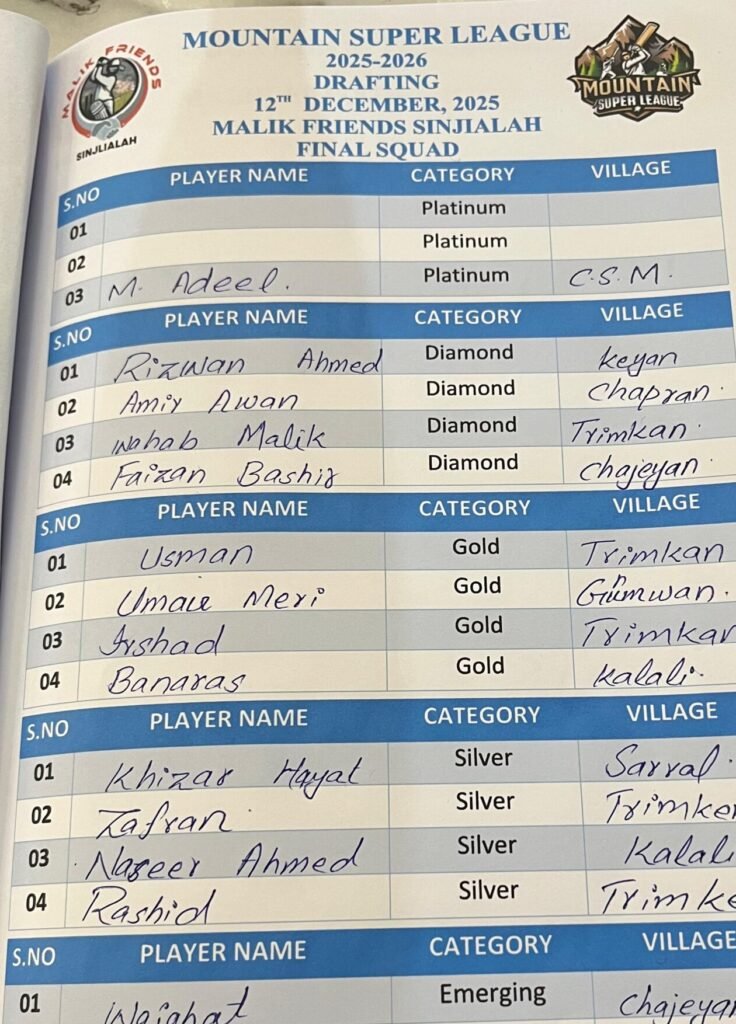 MALIK FRIENDS
SINJLIALAH
MOUNTAIN SUPER LEAGUE
2025-2026
DRAFTING
12TH DECEMBER, 2025
MALIK FRIENDS SINJIALAH
FINAL SQUAD
MOUNTAIN
SUPER LEAGUE
S.NO PLAYER NAME CATEGORY VILLAGE
01 Platinum
02 Platinum
03 M. Adeel. Platinum C.S.M.
S.NO PLAYER NAME CATEGORY VILLAGE
01 Rizwan Ahmed Diamond Keyan
02 Amir Awan Diamond Chapran.
03 Wahab Malik Diamond Trimkan.
04 Faizan Bashir Diamond Chajeyan.
S.NO PLAYER NAME CATEGORY VILLAGE
01 Usman Gold Trimkan
02 Meri Gold
03 Irshad Gold Trimkan
04 Banaras Gold Kalali.
S.NO PLAYER NAME CATEGORY VILLAGE
01 Khizar Hayat Silver Sarral.
02 Zafran Silver Trimke
03 Naseer Ahmed Silver Kalali
04 Rashid Silver Trimke
S.NO PLAYER NAME CATEGORY VILLAGE
01 Wajahat Emerging Chajeyan